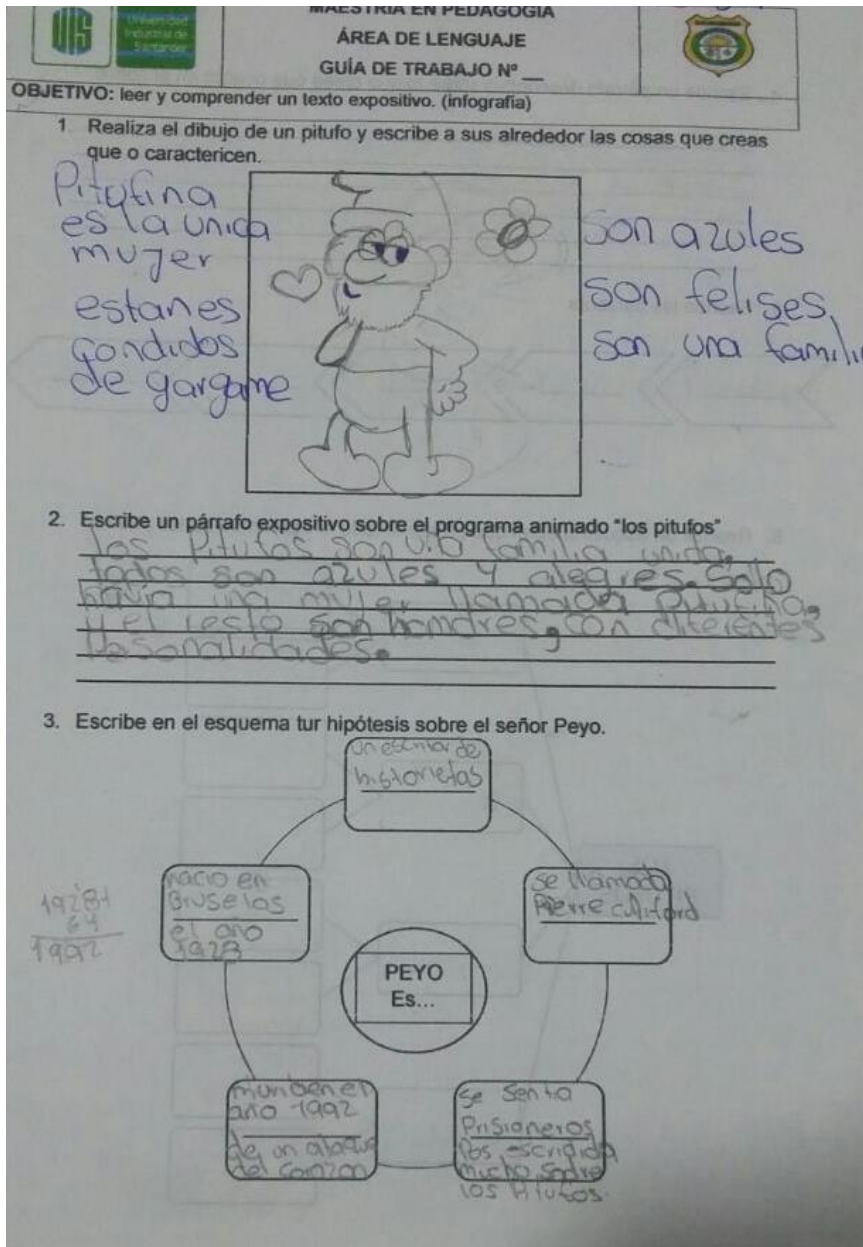 Universidad
Industrial de
Santander
MAESTRÍA EN PEDAGOGÍA
ÁREA DE LENGUAJE
GUÍA DE TRABAJO Nº __
OBJETIVO: leer y comprender un texto expositivo. (infografía)
1 Realiza el dibujo de un pitufo y escribe a sus alrededor las cosas que creas
que o caractericen.
Pitufina
es la unida
mujer
estan es
condidos
de gargame
son azules
son felises
son una famili
2. Escribe un párrafo expositivo sobre el programa animado "los pitufos"
los Pitufos son una familia unida,
todos son azules y alegres. Solo
havia una mujer llamada pitufina,
y el resto son hombres, con diferentes
Pesonalidades.
3. Escribe en el esquema tur hipótesis sobre el señor Peyo.
un escritor de
historietas
nacio en
Bruselas
el año
1928
1928+
64
1992
se llamada
Pierre culiford
PEYO
Es...
año 1992
de un ataque
del corazon
se sentia
Prisioneros
Pos escripida
mucho sodre
los Pitufos.